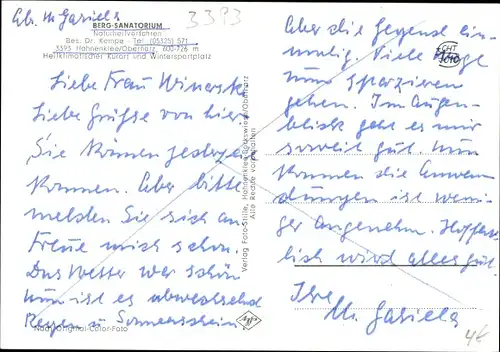 Abs. M. Gasiela
3393
BERG-SANATORIUM
Naturheilverfahren
Bes. Dr. Kempe · Tel. (05325) 571
3393 Hahnenklee/Oberharz, 600-726 m
Heilklimatischer Kurort und Wintersportplatz
Liebe Frau
Liebe Grüsse von hier
Sie können jederzeit
kommen. Aber bitte
melden Sie sich an
Freue mich schon.
Das Wetter war schön
nun ist es abwechselnd
Regen u Sonnenschein
Nach Original-Color-Foto
Verlag Foto-Stille, Hahnenklee-Bockswiese/Oberharz
Alle Rechte vorbehalten
Aber die Gegend ein-
malig. Viele Wege
zum spazieren
gehen. Im Augen-
blick geht es mir
soweit gut. Nun
können die Anwen-
dungen ist weni-
ger angenehm. Hoffent-
lich wird alles gut.
Ihre
M. Gasiela
4€